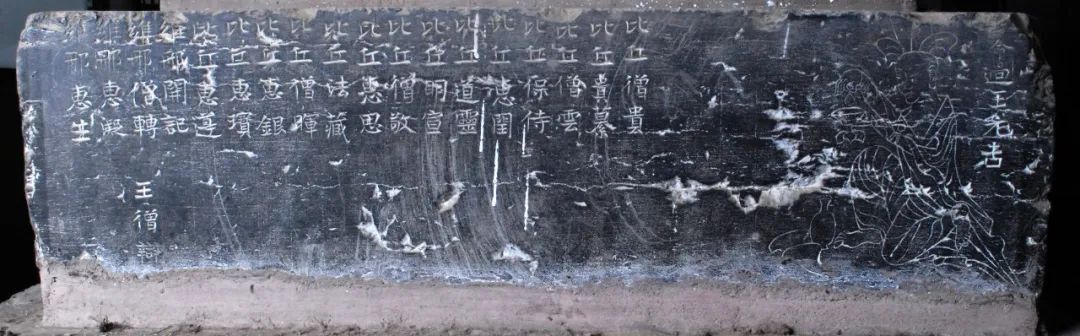 王先吉
比丘僧貴
比丘貴綦
比丘僧雲
比丘保侍
比丘惠閏
比丘道靈
比丘明宣
比丘僧敬
比丘惠思
比丘法藏
比丘僧暉
比丘惠銀
比丘惠瓚
比丘惠逢
維那開記
維那僧轉 王僧
維那惠凝
維那惠生